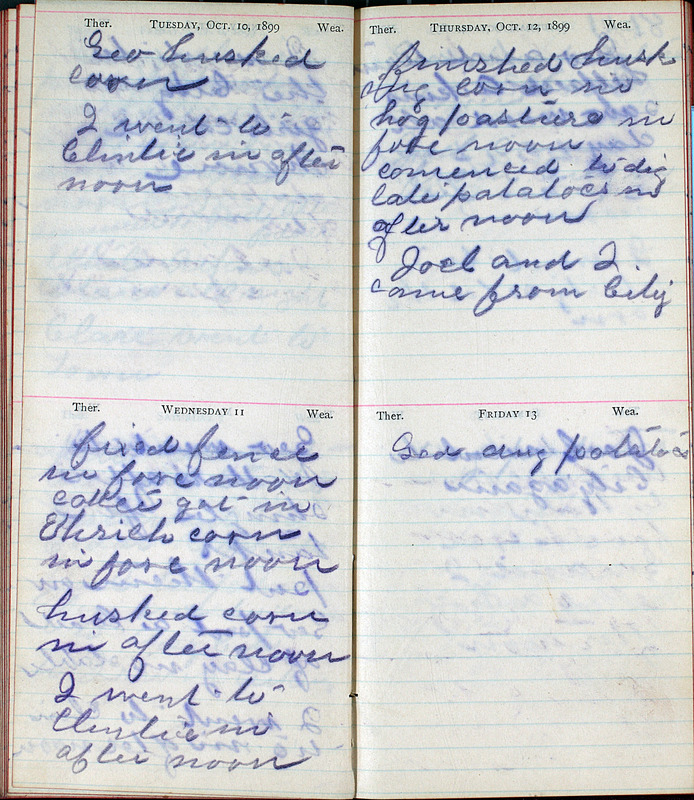 Ther. Tuesday, Oct. 10, 1899 Wea.
Geo husked
corn
I went to
Clintie in after
noon
Ther. Wednesday 11 Wea.
fixed fence
in fore noon
got in
corn
in fore noon
husked corn
in after noon
I went to
Clintie in
after noon
Ther. Thursday, Oct. 12, 1899 Wea.
finished husk
ing corn in
hog pasture in
fore noon
comenced to dig
late patatoes in
after noon
Joel and I
came from City
Ther. Friday 13 Wea.
Geo dug potatoes